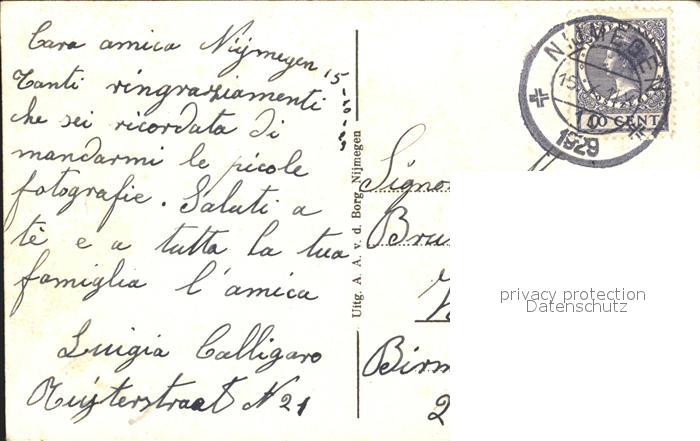 Cara amica Nijmegen
15-10-2
Tanti ringraziamenti
che sei ricordata di
mandarmi le picole
fotografie. Saluti a
tè e a tutta la tua
famiglia l'amica
Luigia Calligaro
N 21
Uitg. A. A. v. d. Borg, Nijmegen
NIJMEGEN
1929
10 CENT
Signo
Bru
Birm
2
privacy protection
Datenschutz